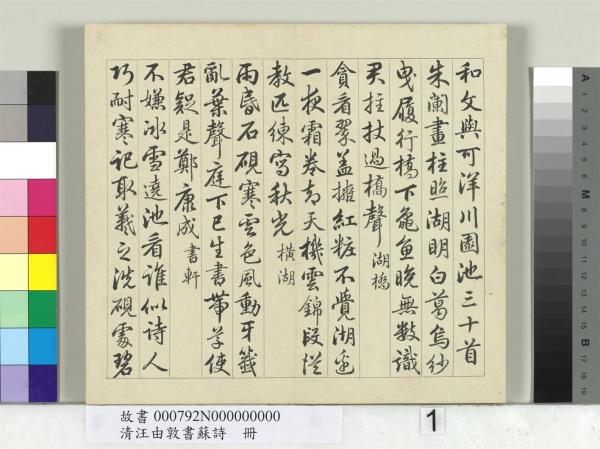 和文與可洋川園池三十首
朱闌畫柱照湖明白葛烏紗
曳履行橋下龜魚晚無數識
君拄杖過橋聲 湖橋
貪看翠蓋擁紅粧不覺湖邊
一夜霜卷却天機雲錦段從
教匹練寫秋光 橫湖
雨昏石硯寒雲色風動牙籤
亂葉聲庭下已生書帶草使
君疑是鄭康成 書軒
不嫌冰雪遶池看誰似詩人
巧耐寒記取羲之洗硯處碧
故書 000792N000000000
清汪由敦書蘇詩 冊
1
A 1 2 3 4 5 6 M 8 9 10 11 12 13 14 15 B 17 18 19